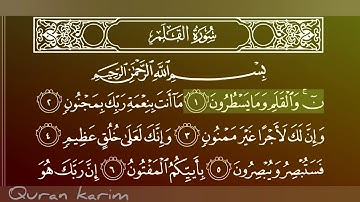 سُورَةُ القَلَمِ
بِسْمِ اللَّهِ الرَّحْمَٰنِ الرَّحِيمِ
نٓ ۚ وَالْقَلَمِ وَمَا يَسْطُرُونَ ١ مَا أَنتَ بِنِعْمَةِ رَبِّكَ بِمَجْنُونٍ ٢
وَإِنَّ لَكَ لَأَجْرًا غَيْرَ مَمْنُونٍ ٣ وَإِنَّكَ لَعَلَىٰ خُلُقٍ عَظِيمٍ ٤
فَسَتُبْصِرُ وَيُبْصِرُونَ ٥ بِأَييِّكُمُ الْمَفْتُونُ ٦ إِنَّ رَبَّكَ هُوَ
Quran karim